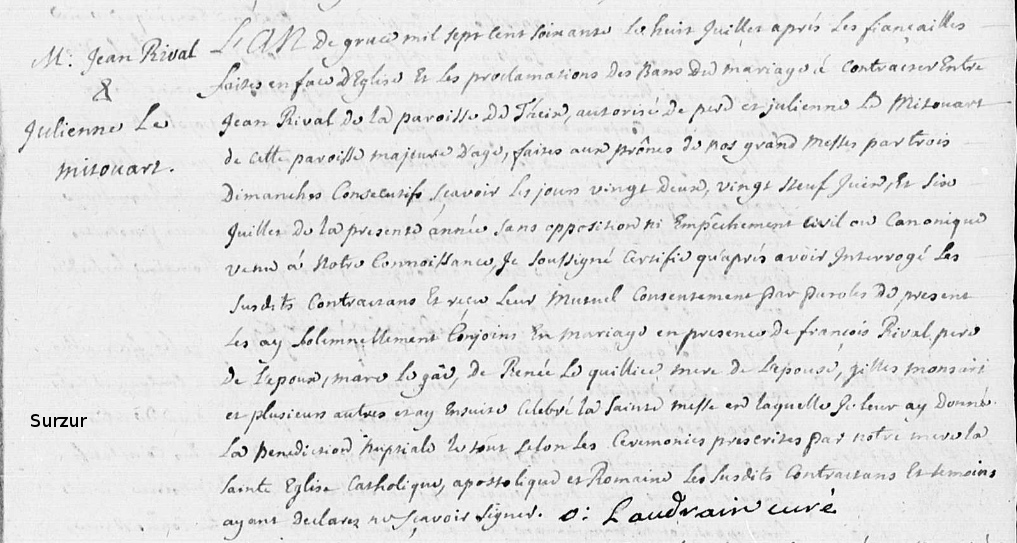 Mr. Jean Rival
&
Julienne Le
mitouart.
L'AN de grace mil sept cent soixante le huit Juillet aprés Les fiançailles
faites en face D'Eglise Et les proclamations des Bans du mariage á Contracter Entre
Jean Rival de la paroisse de Theix, autorisé de pere et julienne Le Mitouart
de cette paroisse majeure D'age, faites aux prônes de nos grand Messes par trois
Dimanches Consecutifs sçavoir Les jours vingt Deux, vingt Neuf Juin, Et Six
Juillet de la presente année sans opposition ni Empêchement Civil ou Canonique
venu á Notre Connoissance, Je soussigné Certifie qu'aprés avoir Interrogé Les
susdits Contractans Et reçu Leur Mutuel Consentement par paroles de present
Les ay Solemnellement Conjoins En mariage en presence de françois Rival, pere
de L'epoux, marc Le gâc, de Renée Le quillier mere de L'epouse, gilles monsart
et plusieurs autres et ay Ensuite Celebré la Sainte messe en laquelle Je leur ay Donné
La Benediction Nuptiale le tout selon les Ceremonies prescrites par notre mere la
Sainte Eglise Catholique, apostolique et Romaine Les susdits Contractans Et temoins
ayant declarez ne sçavoir signer. o: Laudrain curé
Surzur